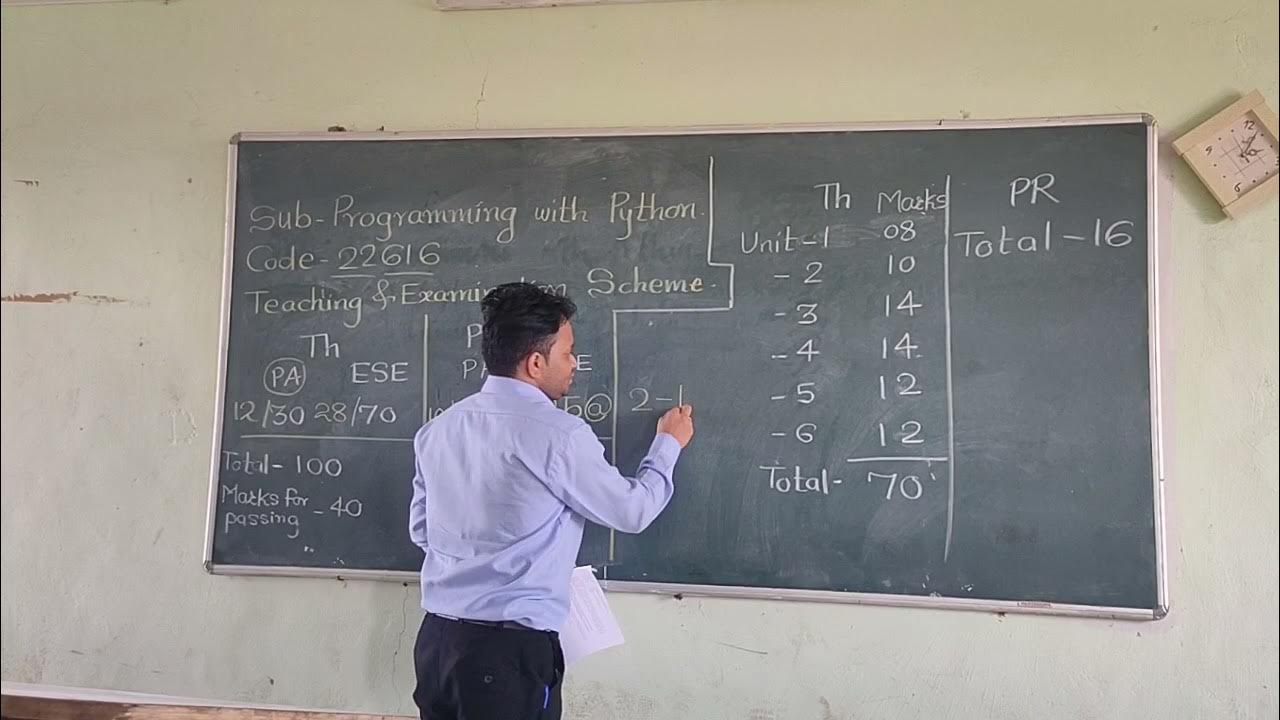 Sub-Programming with Python.
Code-22616
Teaching & Examination Scheme.
Th
PA ESE
12/30 28/70
Total-100
Marks for passing - 40
15@
2-1
Th Marks
Unit-1 08
-2 10
-3 14
-4 14
-5 12
-6 12
Total- 70
PR
Total-16
12
9
6